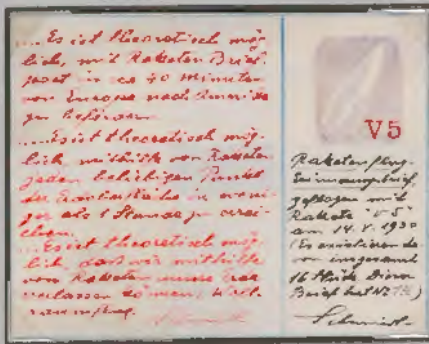 ...Es ist theoretisch mög-
lich, mit Raketen Brief-
post in ca 40 Minuten
von Europa nach Amerika
zu befördern.
...Es ist theoretisch mög-
lich, mithilfe von Raketen
jeden beliebigen Punkt
der Erdoberfläche in weni-
ger als 1 Stunde zu errei-
chen.
...Es ist theoretisch mög-
lich, dass wir mithilfe
von Raketen unsere Erde
verlassen können,
Schmiedl
V5
Raketenflug-
Erinnerungsbrief,
geflogen mit
Rakete "V5"
am 14. V. 1930
(Es existieren da-
von insgesamt
16 Stück. Dieser
Brief hat Nº
Schmiedl